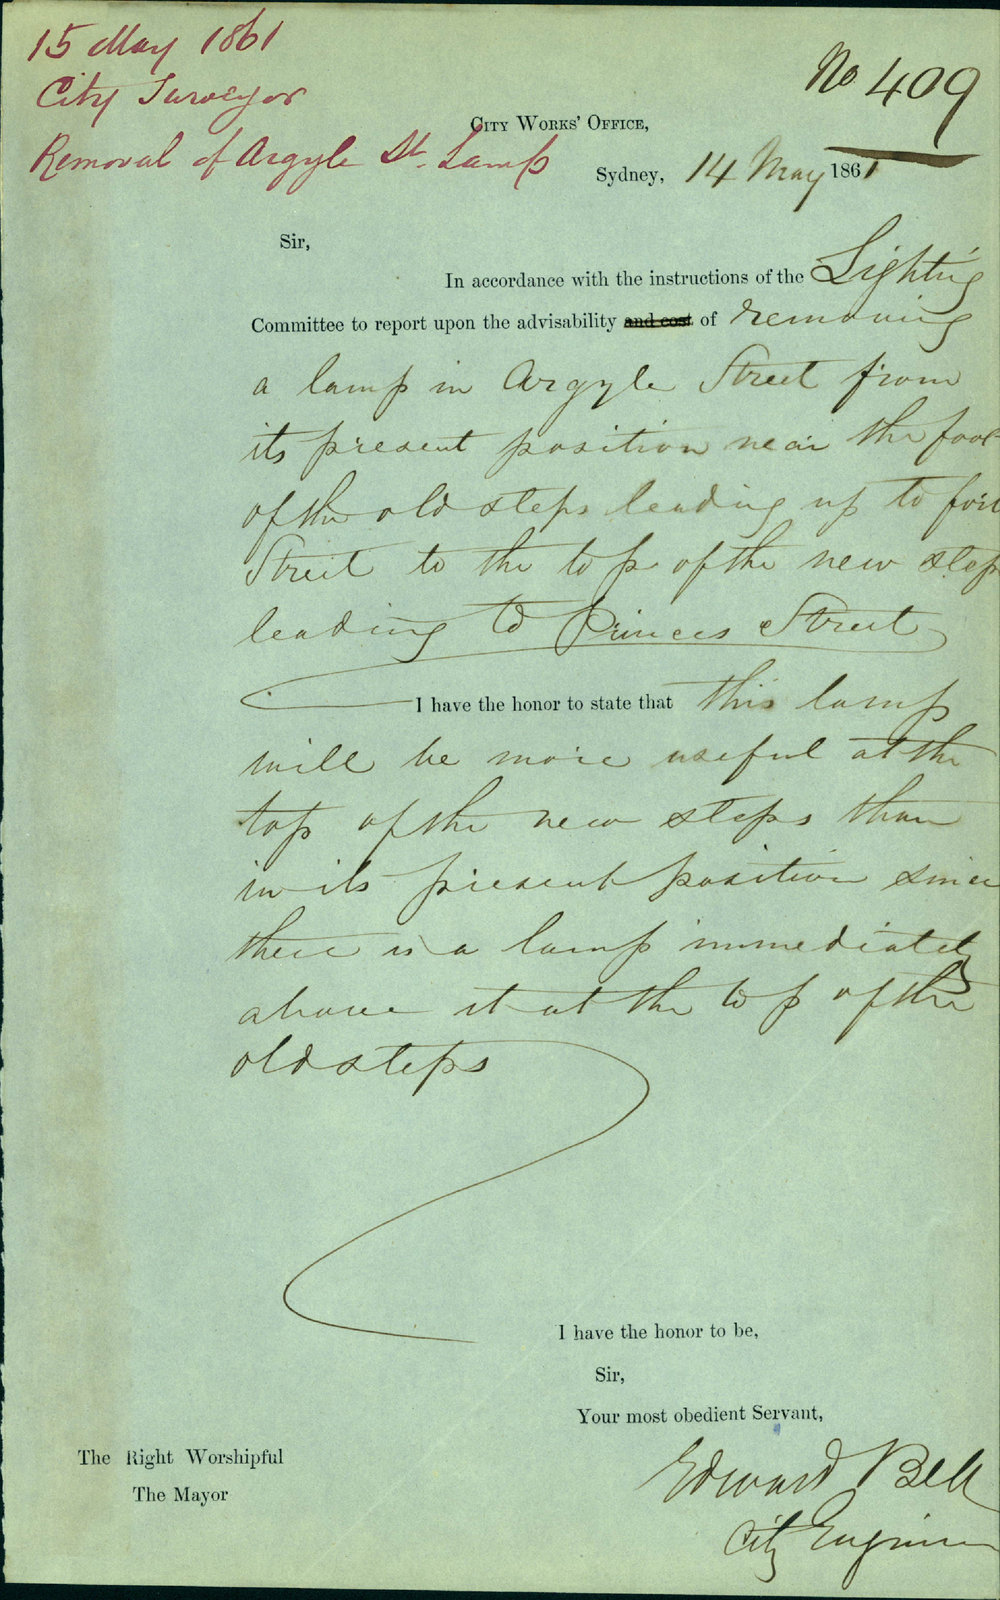 15 May 1861
City Surveyor
Removal of Argyle St. Lamp
No 409
City Works' Office,
Sydney, 14 May 1861
Sir,
In accordance with the instructions of the Lighting
Committee to report upon the advisability and cost of removing
a lamp in Argyle Street from
its present position near the foot
of the old steps leading up to
Street to the top of the new steps
leading to Princes Street
I have the honor to state that this lamp
will be more useful at the
top of the new steps than
in its present position since
there is a lamp immediately
above it at the top of the
old steps
I have the honor to be,
Sir,
Your most obedient Servant,
Edward Bell
City Engineer
The Right Worshipful
The Mayor